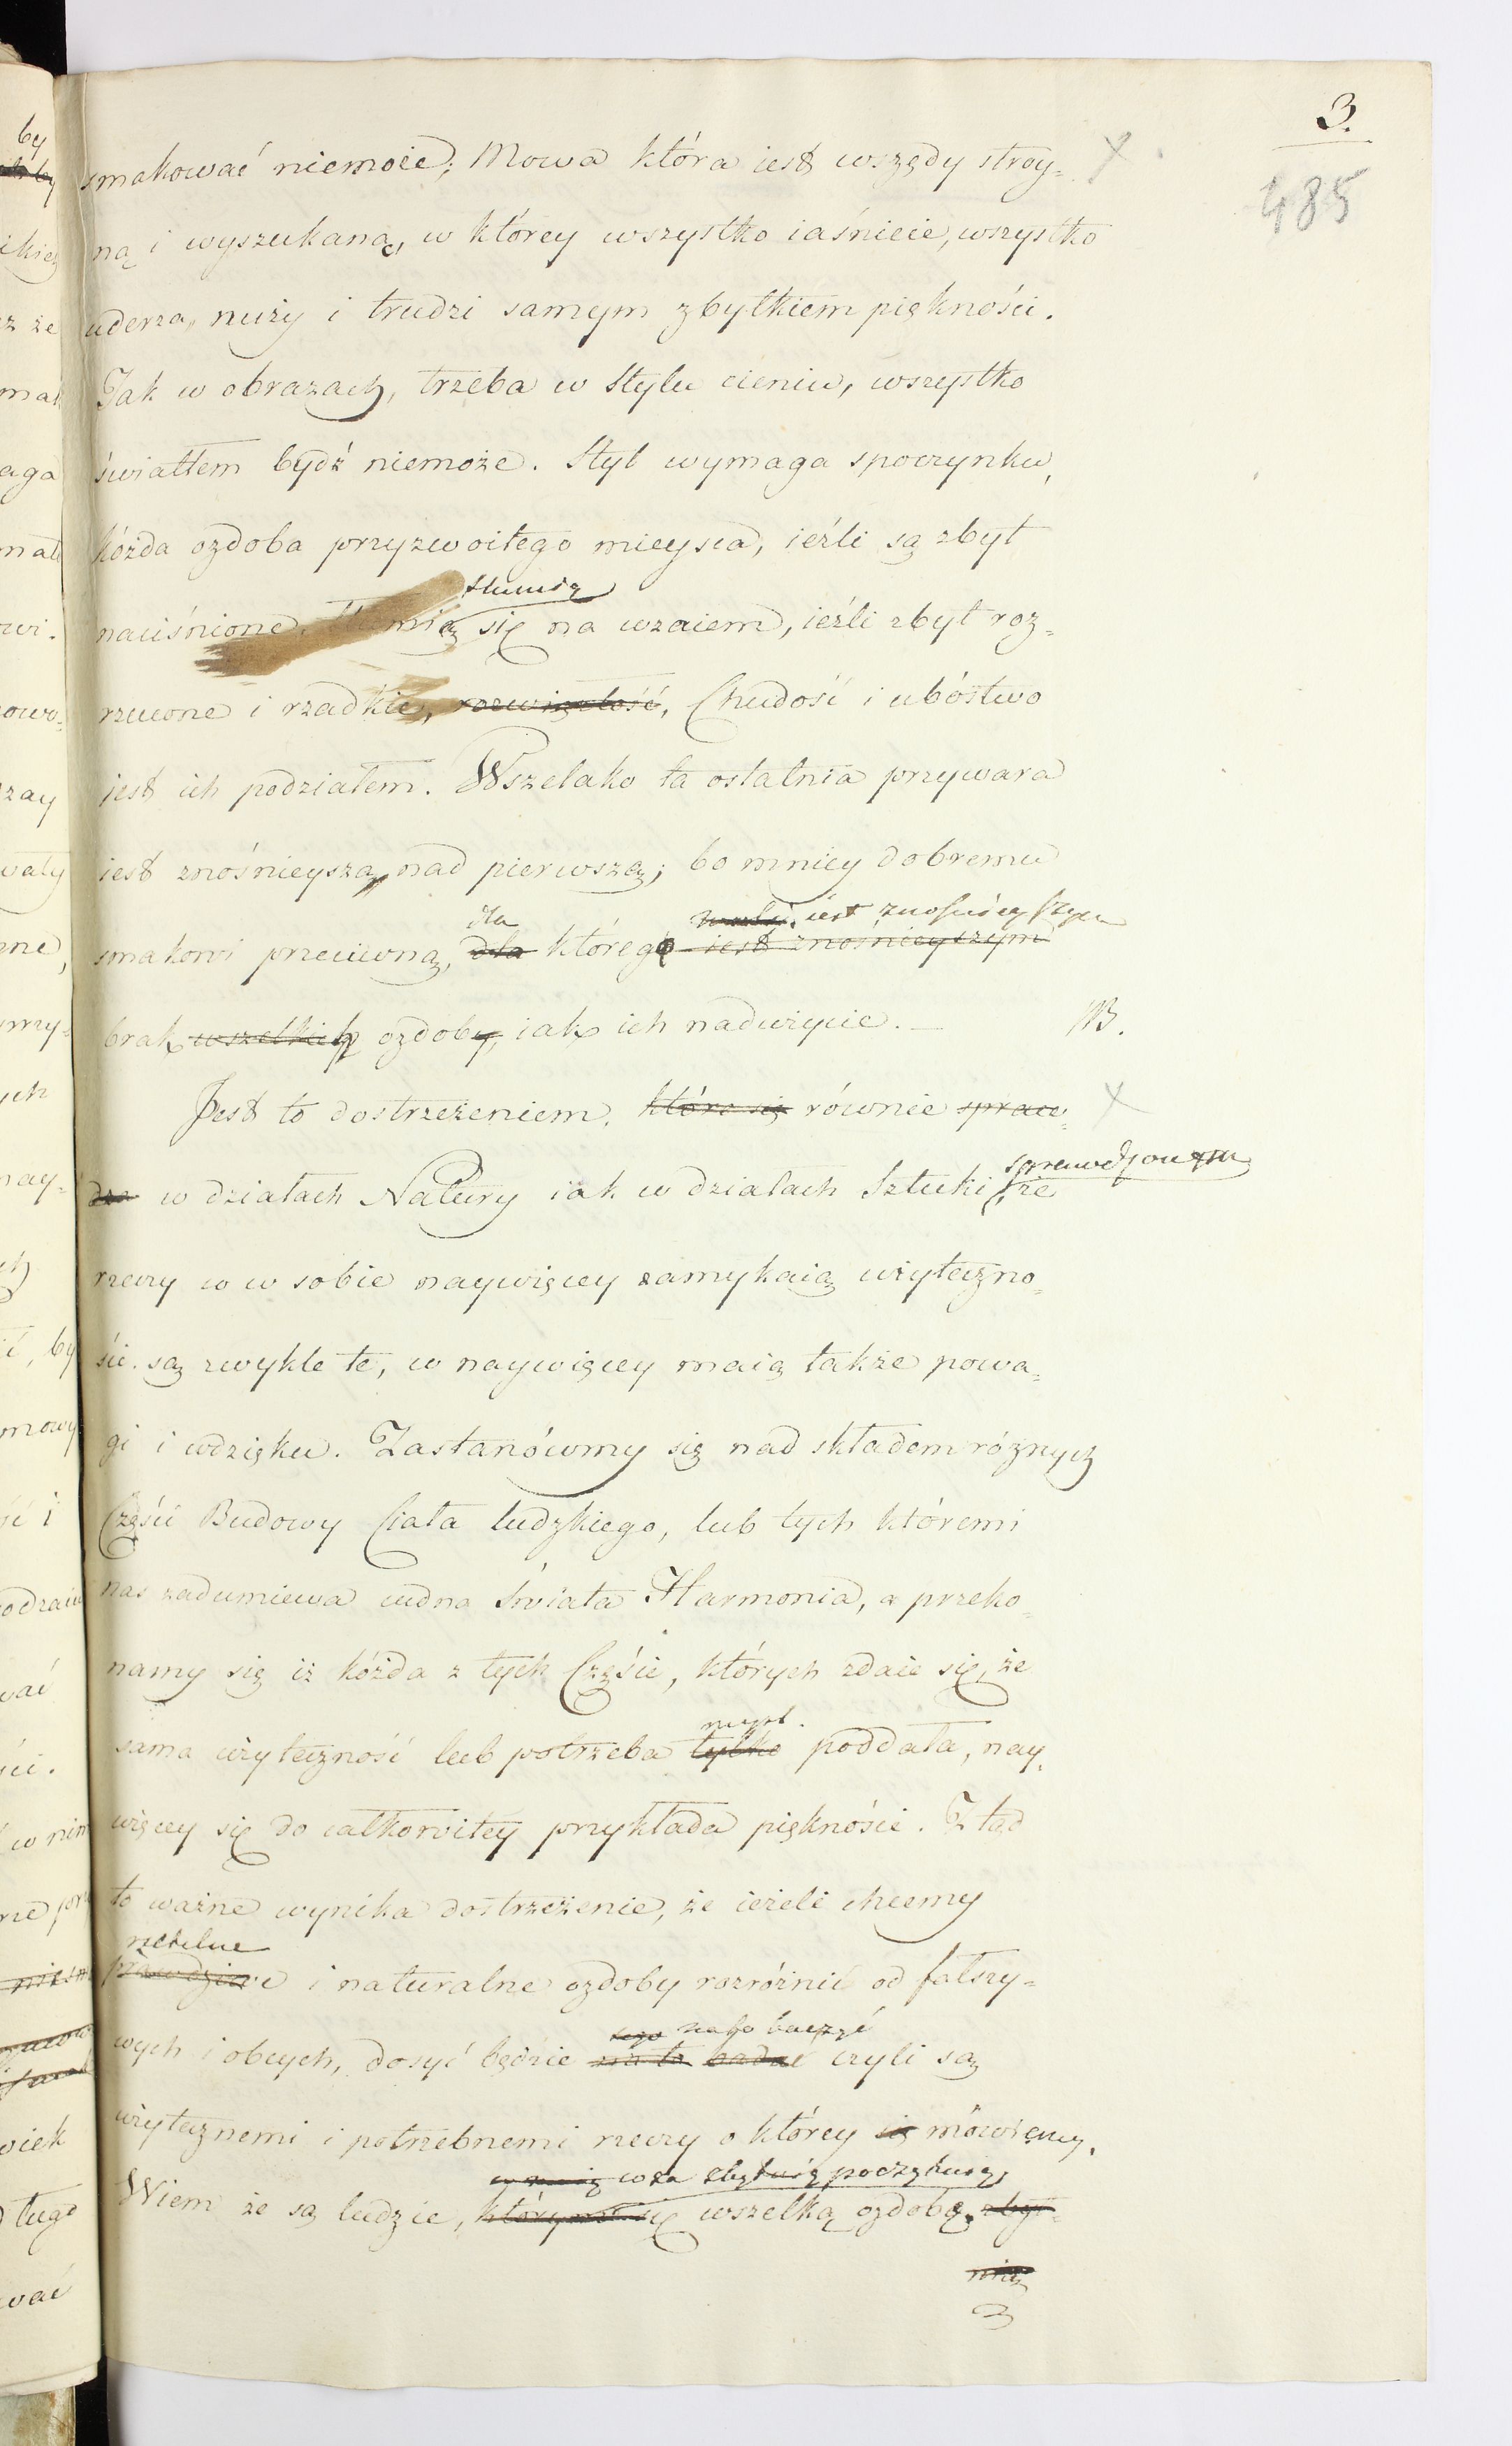 3.
485
smakować niemoże; Mowa która iest wszędy stroy=
ną i wyszukaną, w którey wszystko iaśnieie, wszystko
uderza, nuży i trudzi samym zbytkiem piękności.
Jak w obrazach, trzeba w Stylu cieniu, wszystko
światłem bydź niemoże. Styl wymaga spoczynku,
kóżda ozdoba przyzwoitego mieysca, ieźli są zbyt
tłumią
naciśnione, tłumią się na wzaiem, ieźli zbyt roz=
rzucone i rzadkie, rozwięzłość, Chudość i ubóstwo
jest ich podziałem. Wszelako ta ostatnia przywara
iest znośnieyszą nad pierwszą; bo mniey dobremu
dla iest znośnieyszym
smakowi przeciwną, dla którego iest znośnieyszym
brak wszelkich ozdoby, iak ich nadużycie. NB.
Jest to dostrzeżeniem, które się równie spraw=
sprawdzonem
dza w działach Natury iak w działach Sztuki, że
rzeczy co w sobie naywięcey zamykaią użyteczno=
ści. są zwykle te, co naywięcey maią także powa=
gi i wdzięku. Zastanówmy się nad składem różnych
Części Budowy Ciała ludzkiego, lub tych któremi
nas zadumiewa cudna Świata Harmonia, a przeko=
namy się iż kóżda z tych Części, których zdaie się, że
myśl
sama użyteczność lub potrzeba tylko poddała, nay=
więcey się do całkowitey przykłada piękności. Z tąd
to ważne wynika dostrzeżenie, że ieżeli chcemy
rzetelne
prawdziwe i naturalne ozdoby rozróżnić od fałszy=
tego na to baczyć
wych i obcych, dosyć będzie na to badać czyli są
użytecznemi i potrzebnemi rzeczy o którey się mówiemy.
co za zbytnią poczytuią,
Wiem że są ludzie, którym się wszelką ozdobę, zbyt=
nią
3